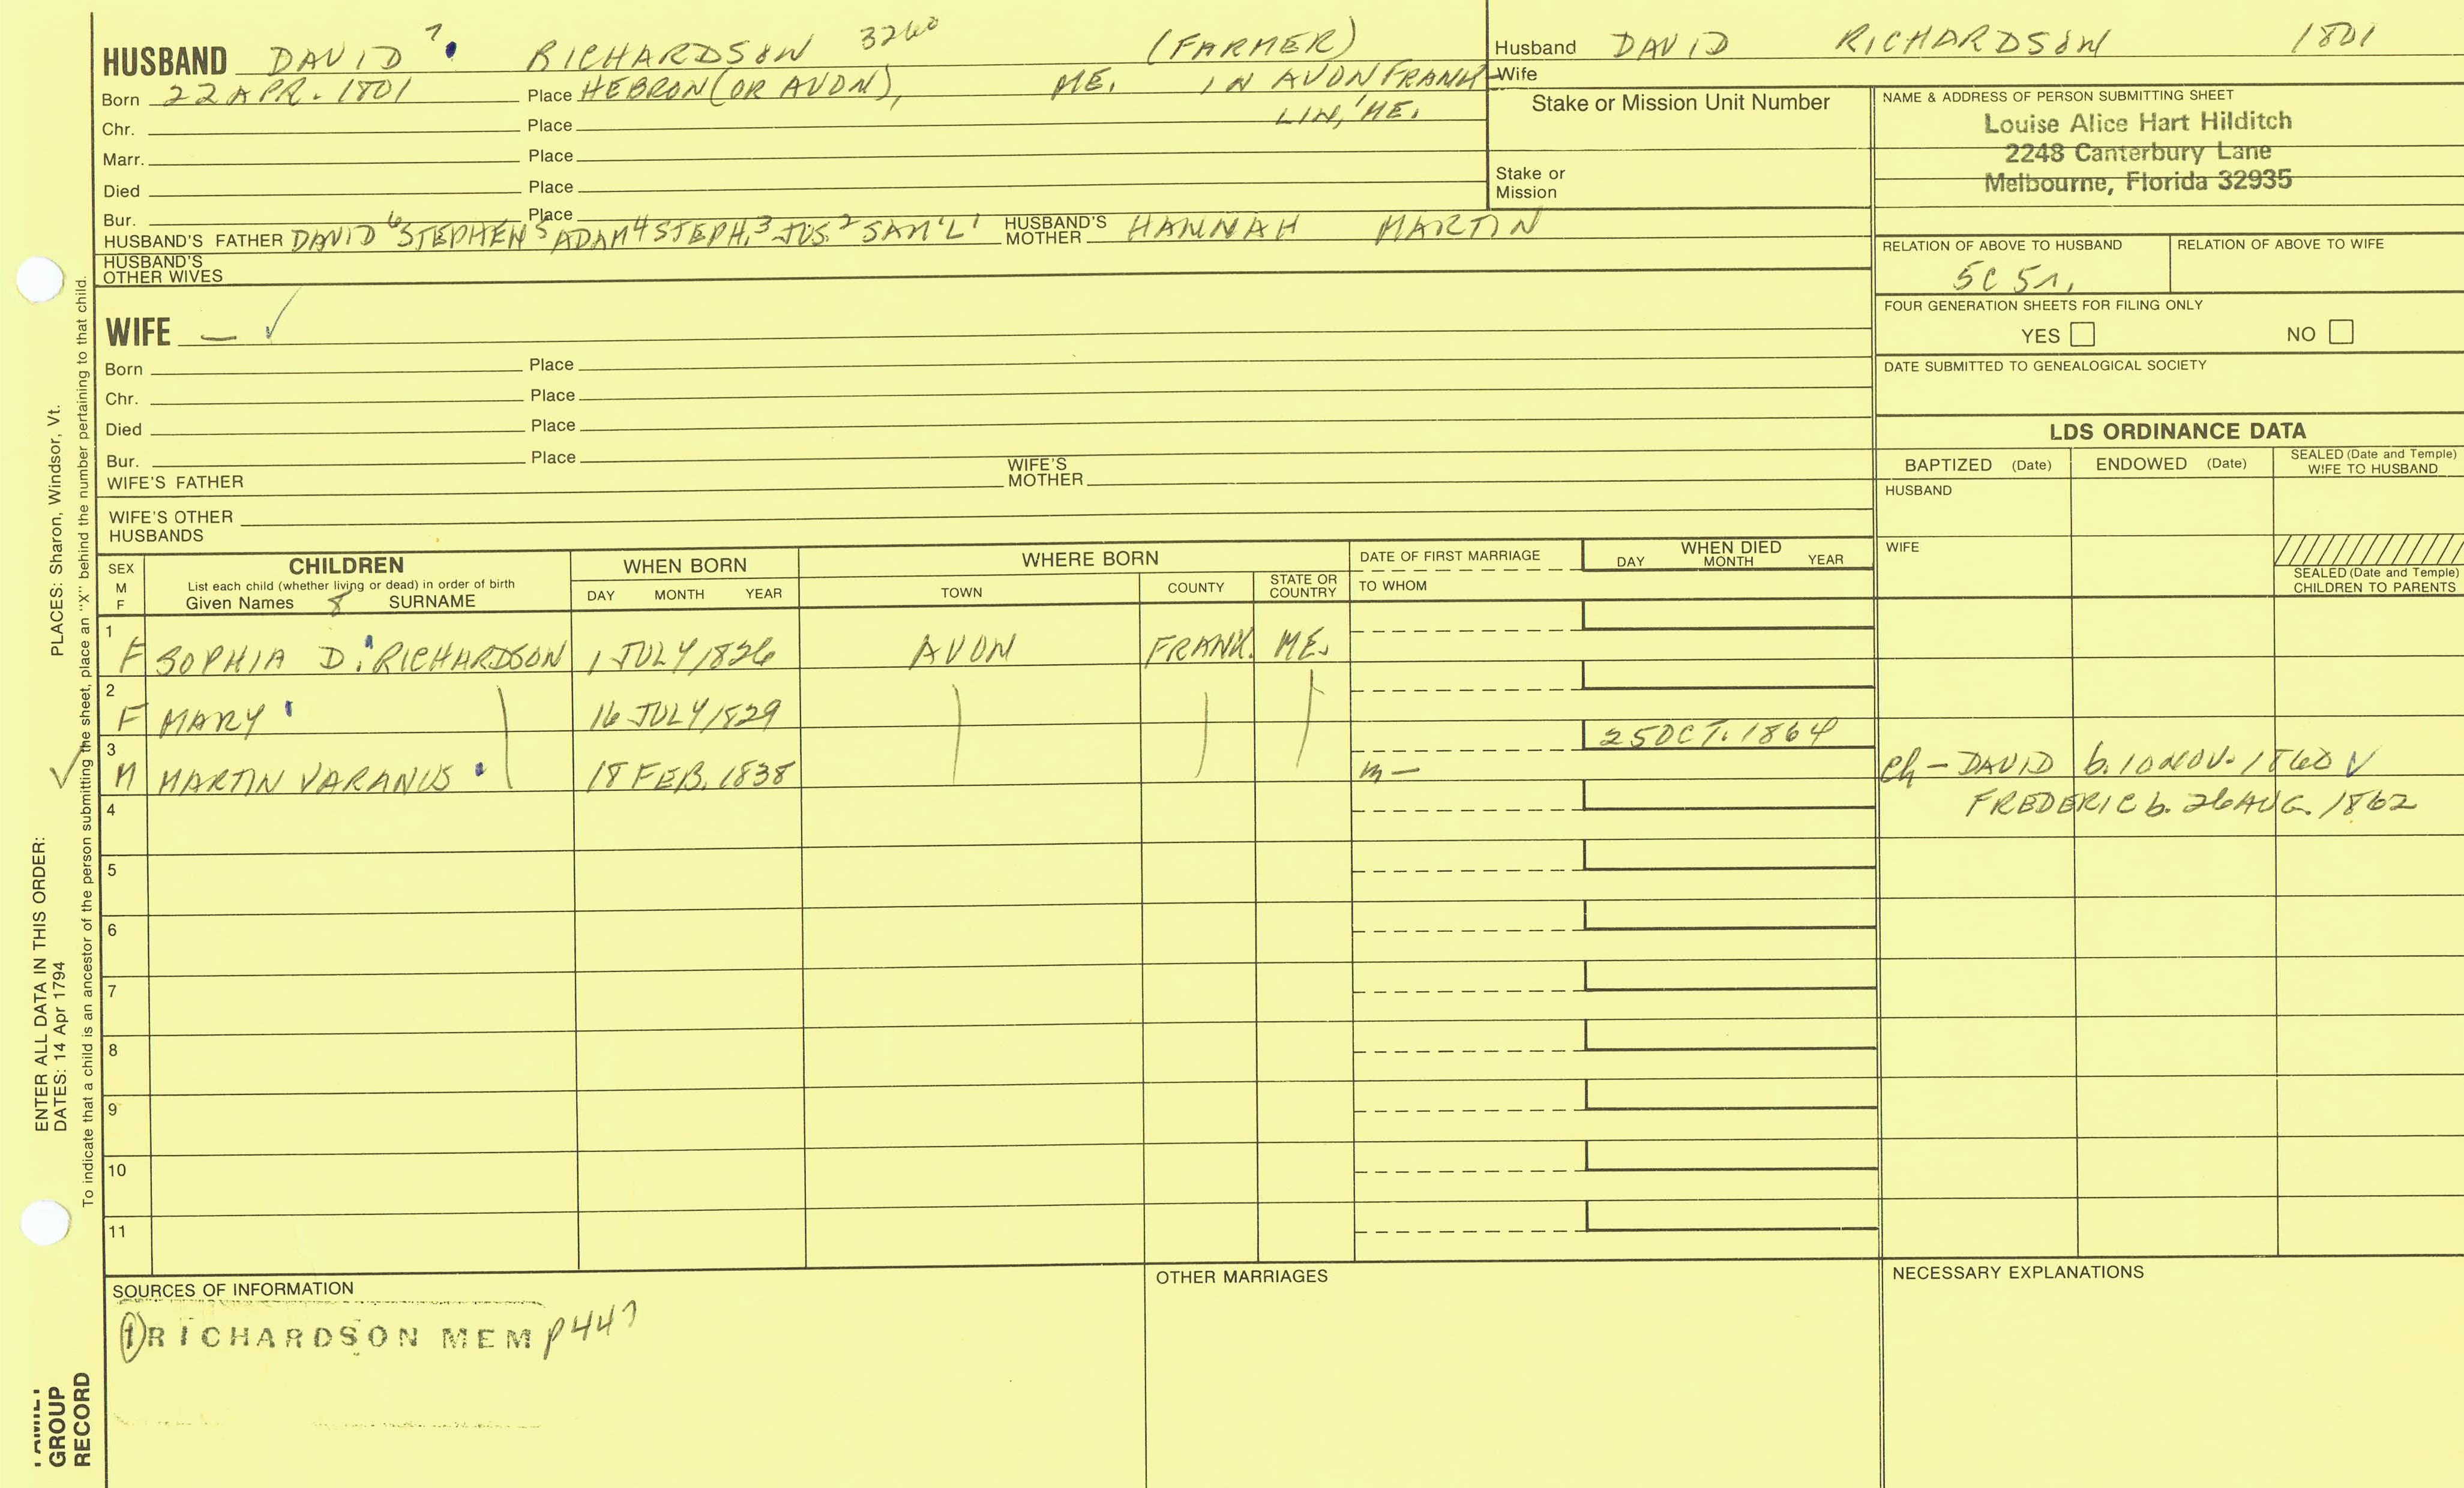 HUSBAND DAVID 7 RICHARDSON 3260 (FARMER)
Born 22 APR. 1801 Place HEBRON (OR AVON), ME. IN AVON FRANK
LIN, ME.
Chr. Place
Marr. Place
Died Place
Bur. Place
HUSBAND'S FATHER DAVID 6 STEPHEN 5 ADAM 4 STEPH. 3 JOS. 2 SAM'L 1 HUSBAND'S MOTHER HANNAH MARTIN
HUSBAND'S
OTHER WIVES
WIFE — ✓
Born Place
Chr. Place
Died Place
Bur. Place
WIFE'S FATHER WIFE'S MOTHER
WIFE'S OTHER
HUSBANDS
Husband DAVID RICHARDSON 1801
Wife
Stake or Mission Unit Number
Stake or
Mission
NAME & ADDRESS OF PERSON SUBMITTING SHEET
Louise Alice Hart Hilditch
2248 Canterbury Lane
Melbourne, Florida 32935
RELATION OF ABOVE TO HUSBAND RELATION OF ABOVE TO WIFE
5C 5r.
FOUR GENERATION SHEETS FOR FILING ONLY
YES NO
DATE SUBMITTED TO GENEALOGICAL SOCIETY
LDS ORDINANCE DATA
BAPTIZED (Date) ENDOWED (Date) SEALED (Date and Temple)
WIFE TO HUSBAND
HUSBAND
WIFE
SEALED (Date and Temple)
CHILDREN TO PARENTS
SEX
M
F
CHILDREN
List each child (whether living or dead) in order of birth
Given Names 8 SURNAME
WHEN BORN
DAY MONTH YEAR
WHERE BORN
TOWN COUNTY STATE OR
COUNTRY
DATE OF FIRST MARRIAGE
TO WHOM
WHEN DIED
DAY MONTH YEAR
1
F SOPHIA D. RICHARDSON 1 JULY 1826 AVON FRANK. ME.
2
F MARY 16 JULY 1829
3 25 OCT. 1864
M MARTIN VARANUS 18 FEB. 1838 m— Ch - DAVID b. 10 NOV. 1860 ✓
FREDERIC b. 26 AUG. 1862
4
5
6
7
8
9
10
11
SOURCES OF INFORMATION
1 RICHARDSON MEM p447
OTHER MARRIAGES
NECESSARY EXPLANATIONS
PLACES: Sharon, Windsor, Vt.
ENTER ALL DATA IN THIS ORDER:
DATES: 14 Apr 1794
To indicate that a child is an ancestor of the person submitting the sheet, place an "X" behind the number pertaining to that child.
FAMILY
GROUP
RECORD